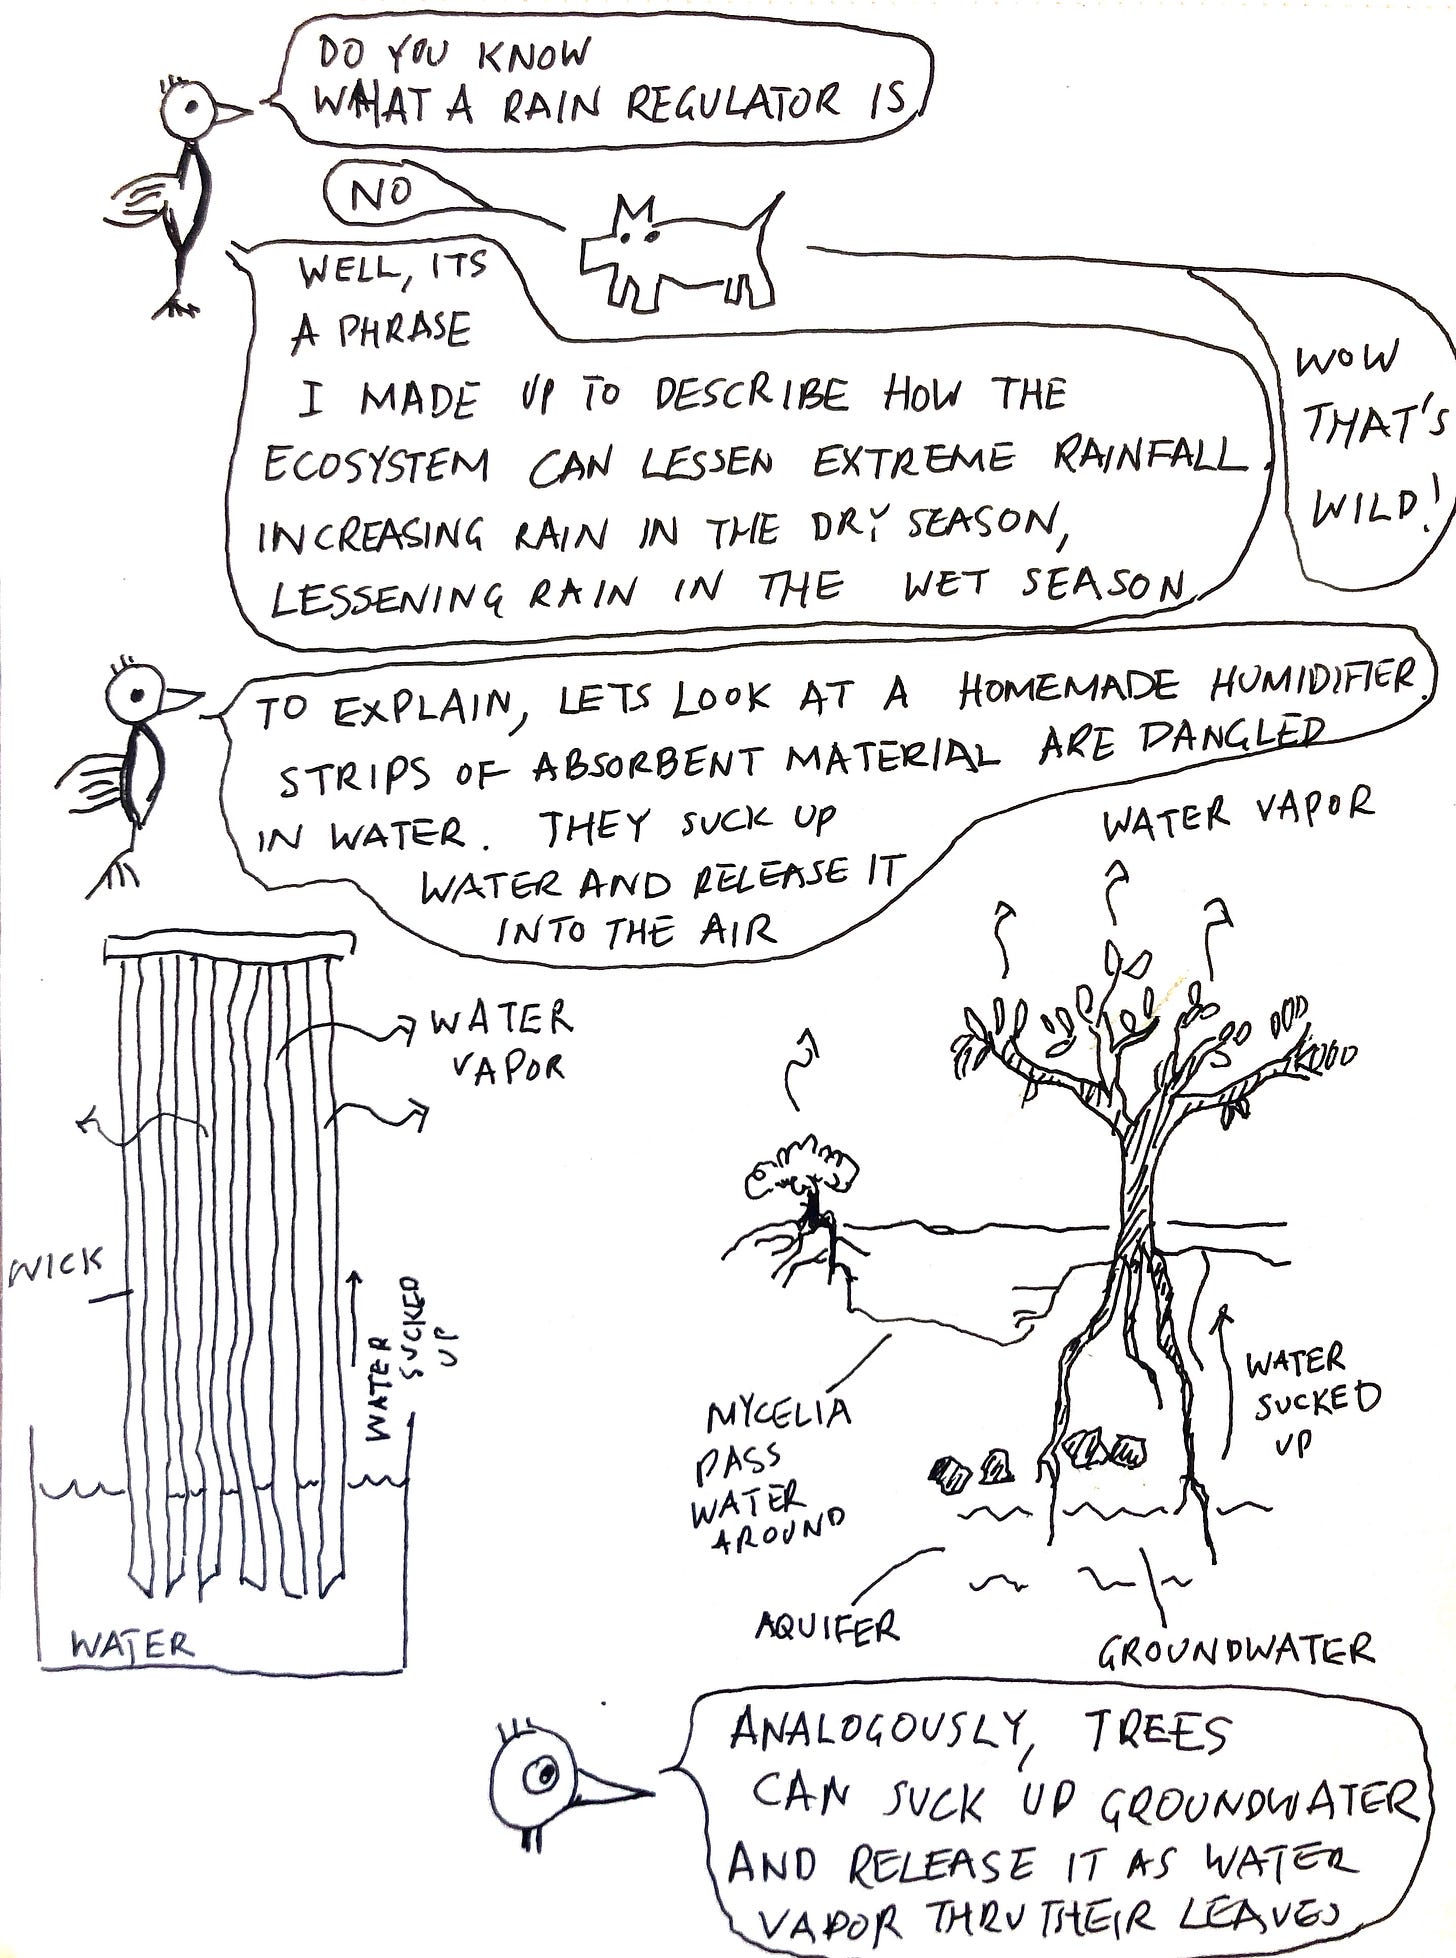 DO YOU KNOW
WHAT A RAIN REGULATOR IS
NO
WELL, ITS
A PHRASE
I MADE UP TO DESCRIBE HOW THE
ECOSYSTEM CAN LESSEN EXTREME RAINFALL.
INCREASING RAIN IN THE DRY SEASON,
LESSENING RAIN IN THE WET SEASON
WOW
THAT'S
WILD!
TO EXPLAIN, LETS LOOK AT A HOMEMADE HUMIDIFIER.
STRIPS OF ABSORBENT MATERIAL ARE DANGLED
IN WATER. THEY SUCK UP
WATER AND RELEASE IT
INTO THE AIR
WATER
VAPOR
WICK
WATER
SUCKED
UP
WATER
WATER VAPOR
MYCELIA
PASS
WATER
AROUND
WATER
SUCKED
UP
AQUIFER
GROUNDWATER
ANALOGOUSLY, TREES
CAN SUCK UP GROUNDWATER
AND RELEASE IT AS WATER
VAPOR THRU THEIR LEAVES